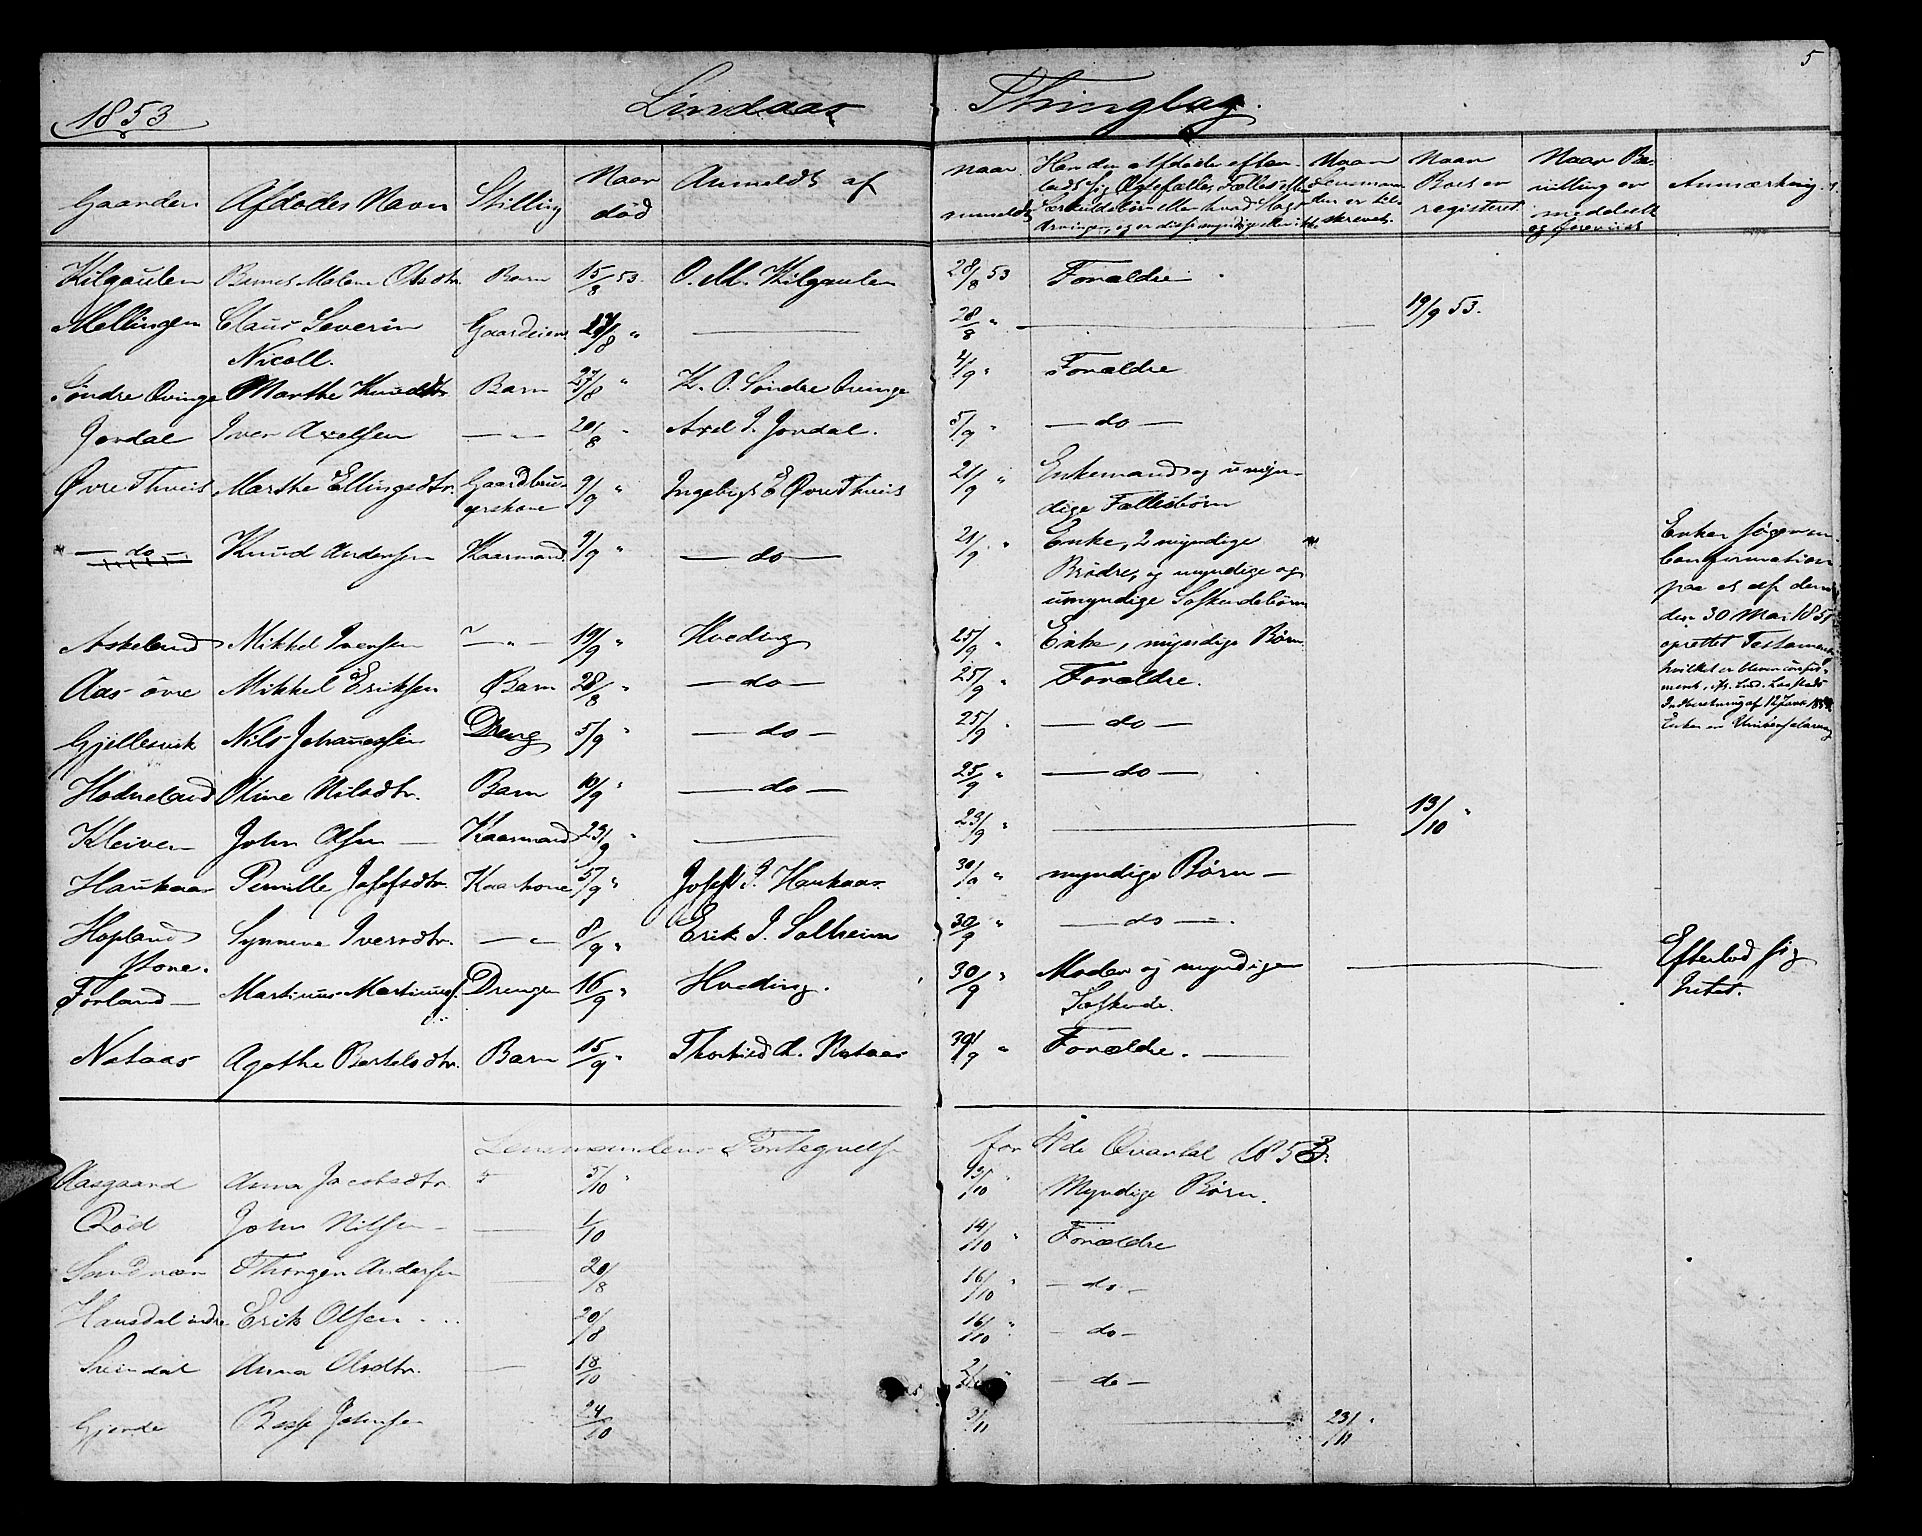 5
1853 Lindaas Thinglag.
Gaarden Afdødes Navn Stilling Naar død Anmeldt af Naar anmeldt Har den Afdøde efterladt sig Ægtefælle, Fælles eller Særkuldsbørn eller hvad Slags Arvinger, og er disse myndige eller ikke Naar Lensmanden er tilskrevet. Naar Boet er registeret Naar Bevilling er meddeelt og forevist Anmærkninger.
Kilgaulen Malene Olsdtr. Barn 15/8 53. O. M. Kilgaulen 28/8 53 Forældre
Mellingen Claus Severin Nicoll. Gaardeier /8 " — 28/8 " — 19/9 53.
Søndre Qvinge Marthe Knudsdtr Barn 27/8 " K. O. Søndre Qvinge 4/9 " Forældre
Jordal Iver Axelsen — " — 20/8 " Axel I. Jordal. 5/9 " — do —
Øvre Thveit Marthe Ellingsdtr. Gaardbrugerskone 9/9 " Ingebrigt E Øvre Thveit 21/9 " Enkemand og umyndige Fællesbørn
— do — Knud Andersen Kaarmand 9/9 " — do — 21/9 " Enke, 2 myndige Brødre, og myndige og umyndige Søskendebørn
Enken søger om Confirmation paa et af dem den 30 Mai 1851 oprettet Testament hvilket er bleven confirmeret, Indberetning af 12 Jan. Enken er Universalarving
Askeland Mikkel Iversen — " — 19/9 " Hveding 25/9 " Enke, myndige Børn
Aas øvre Mikkel Eriksen Barn 28/8 " — do — 25/9 " Forældre.
Gjellesvik Nils Johannessen Dreng 5/9 " — do — 25/9 " — do —
Hodneland Oline Nilsdtr. Barn 10/9 " — do — 25/9 " — do —
Kleiven John Olsen — Kaarmand 23/9 " — 23/9 " — 13/10 "
Haukaas Pernille Josefsdtr. Kaarkone 5/9 " Josef J. Haukaas 30/9 " myndige Børn —
Hopland Synneve Iversdtr. — " — 8/9 " Erik J. Solheim 30/9 " — do —
Forland — Martinus Martinuss. Drengen 16/9 " Hveding. 30/9 " Moder og myndige Søskende. — Efterlod sig Intet.
Nataas Agathe Bertelsdtr. Barn 15/9 " Nataas 30/9 " Forældre. —
Lensmandens Fortegnelse for 4de Qvartal 1853.
Aasgaard Anna Jacobsdtr. 5/10 " 13/10 " Myndige Børn.
Rød John Nilsen — — 1/10 14/10 " Forældre
Sandnæs Thorger Andersen — 20/8 16/10 " — do —
Hausdal indre Erik Olsen 20/8 16/10 " — do —
Sveindal Anna Olsdtr. — 18/10 — do —
Gjerde 24/10 3/11 — 23/11 "